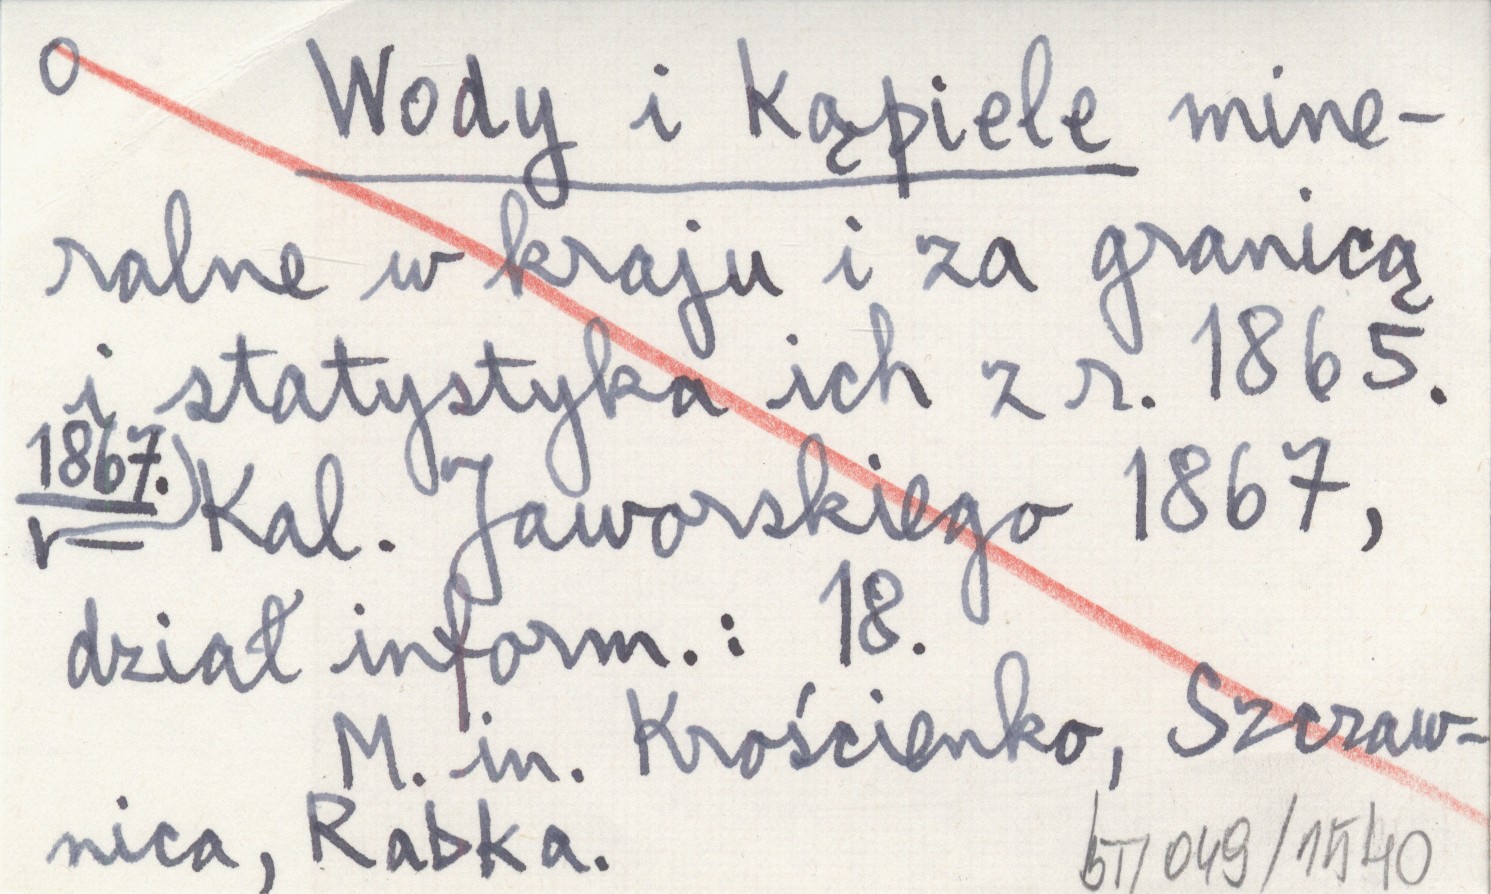 O Wody i kąpiele mine-
ralne w kraju i za granicą
i statystyka ich z r. 1865.
1867.) Kal. Jaworskiego 1867,
dział inform.: 18.
M. in. Krościenko, Szczaw-
nica, Rabka.